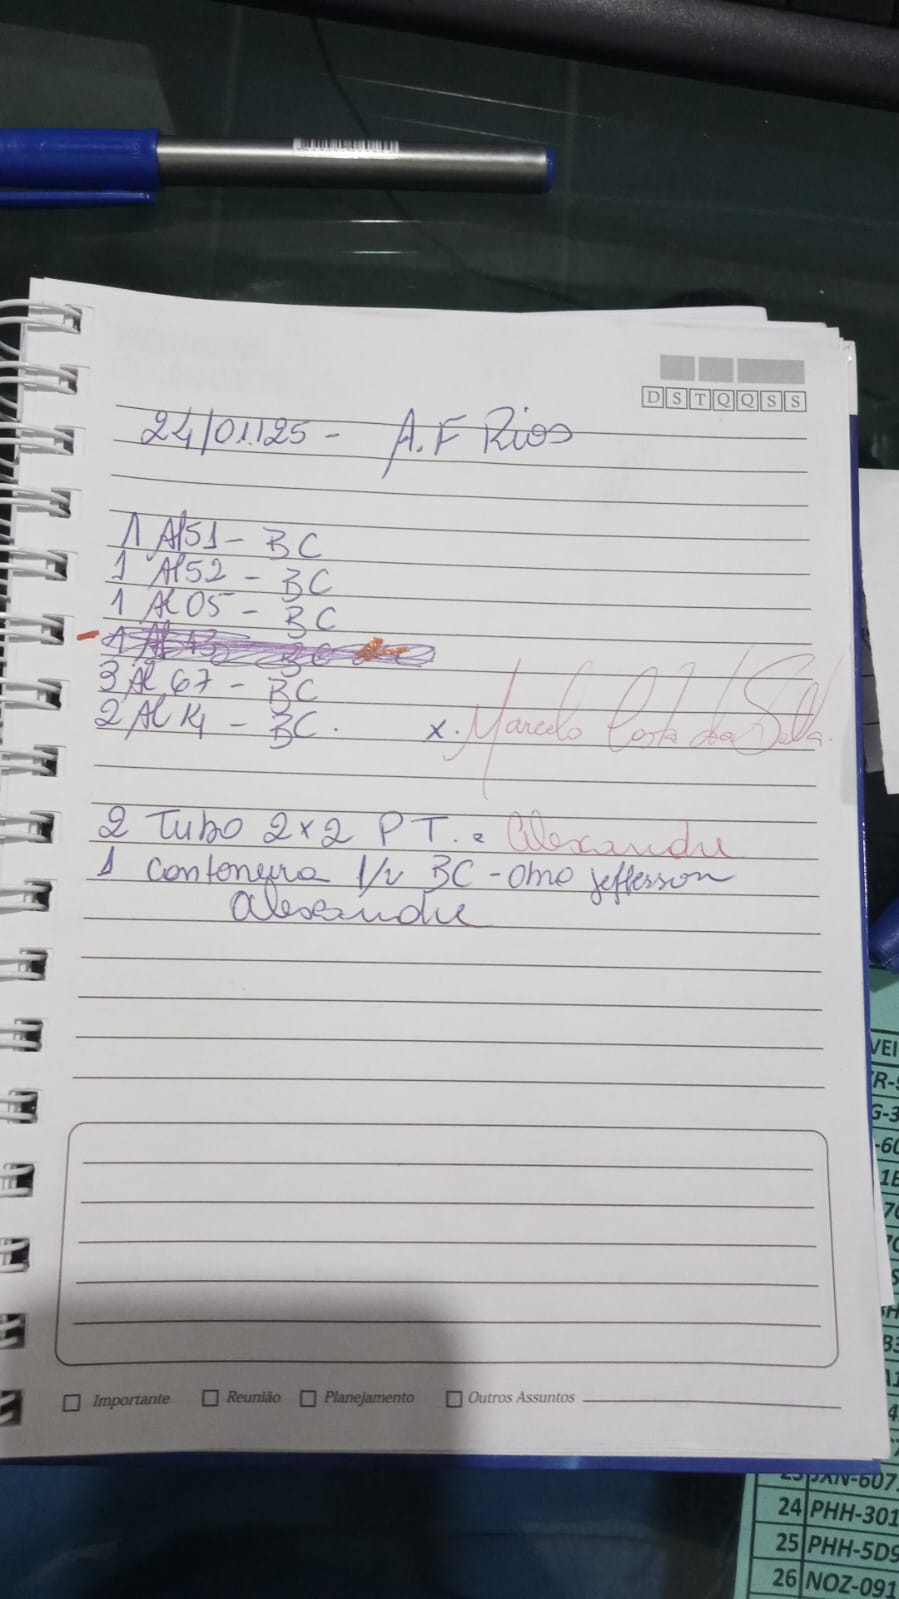 D S T Q Q S S
24/01/25 - A.F Rios
1 Al51 - BC
1 Al52 - BC
1 Al 05 - BC
3 Al 67 - BC
2 Al K1 - BC.
x. Marcelo Costa da Silva
2 Tubo 2x2 PT. Alexandre
1 Cantoneira 1/2 BC - Jefferson
Alexandre
Importante Reunião Planejamento Outros Assuntos
VEI
24 PHH-301
25 PHH-5D9
26 NOZ-091